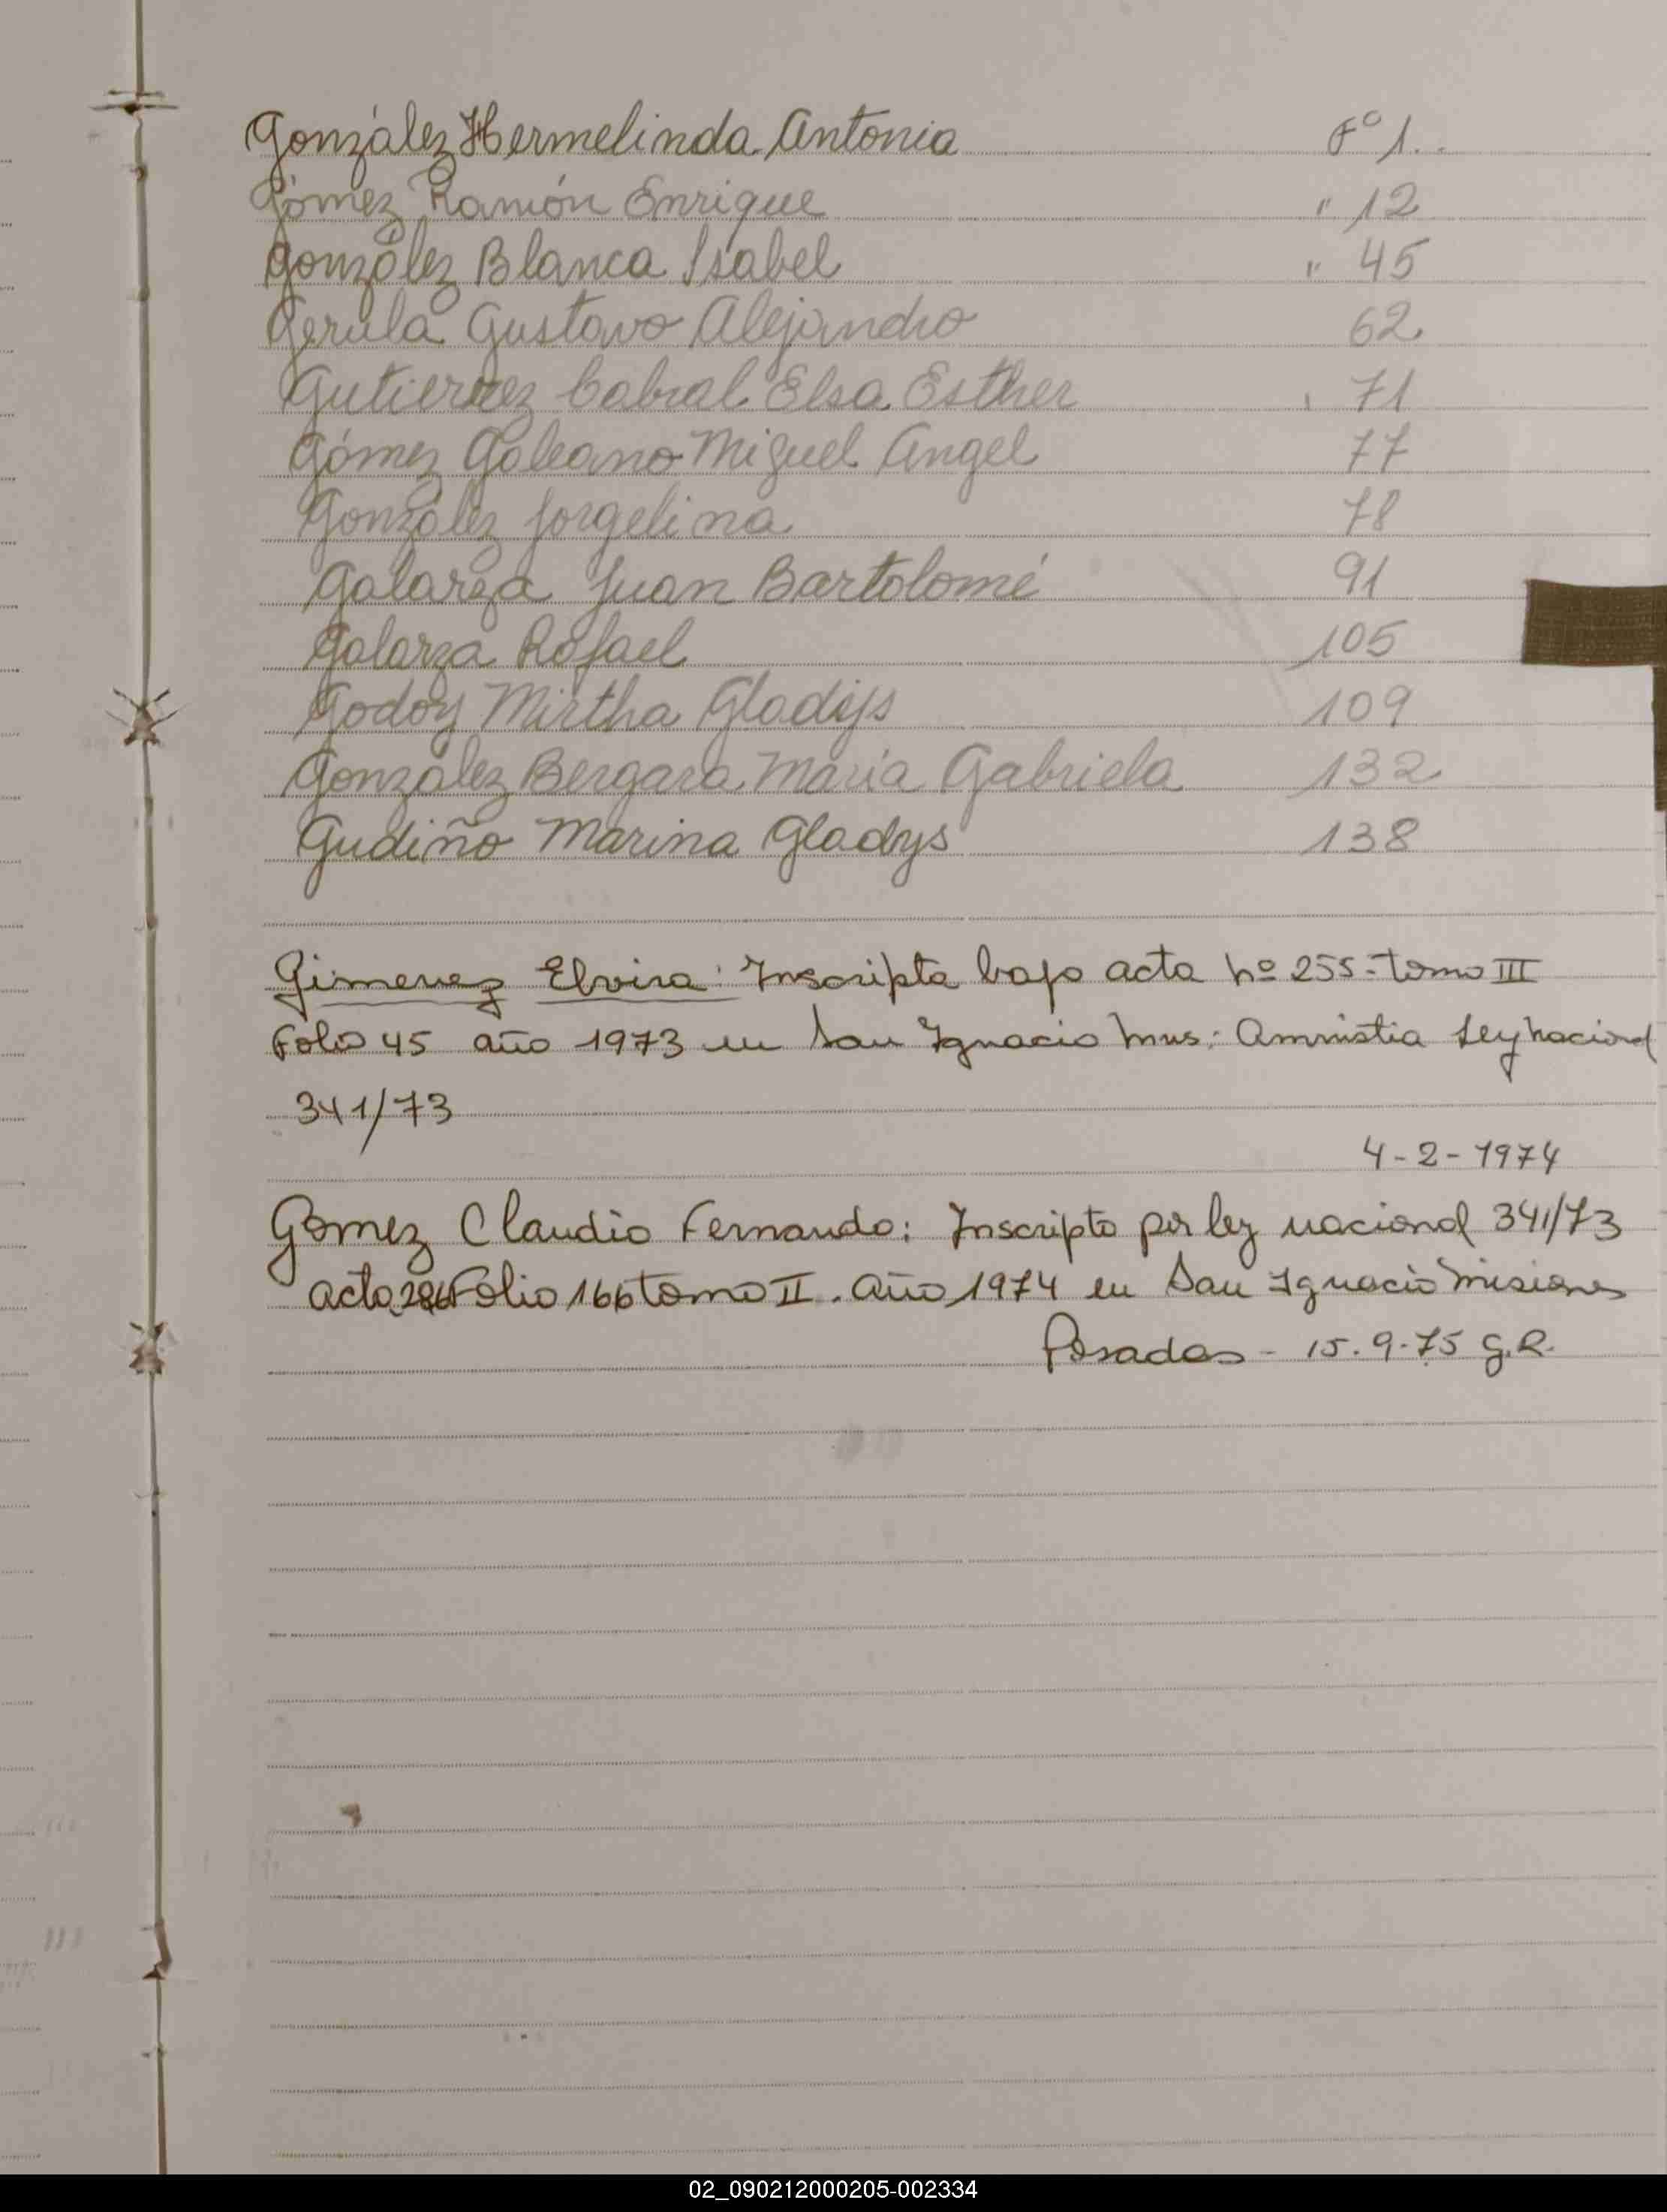 González Hermelinda Antonia Fº 1.
Gómez Ramón Enrique " 12
González Blanca Isabel " 45
Gerula Gustavo Alejandro 62
Gutierrez Cabral Elsa Esther 71
Gómez Galeano Miguel Angel 77
González Jorgelina 78
Galarza Juan Bartolomé 91
Galarza Rafael 105
Godoy Mirtha Gladys 109
González Bergara María Gabriela 132
Gudiño Marina Gladys 138
Gimenez Elvira: Inscripta bajo acta nº 255- tomo III
Folio 45 año 1973 en San Ignacio Mns: Amnistia Ley nacional
341/73
4-2-1974
Gomez Claudio Fernando: Inscripto por ley nacional 341/73
acta Folio 166 tomo II. año 1974 en San Ignacio Misiones
Posadas - 15.9.75 G.R.
02_090212000205-002334